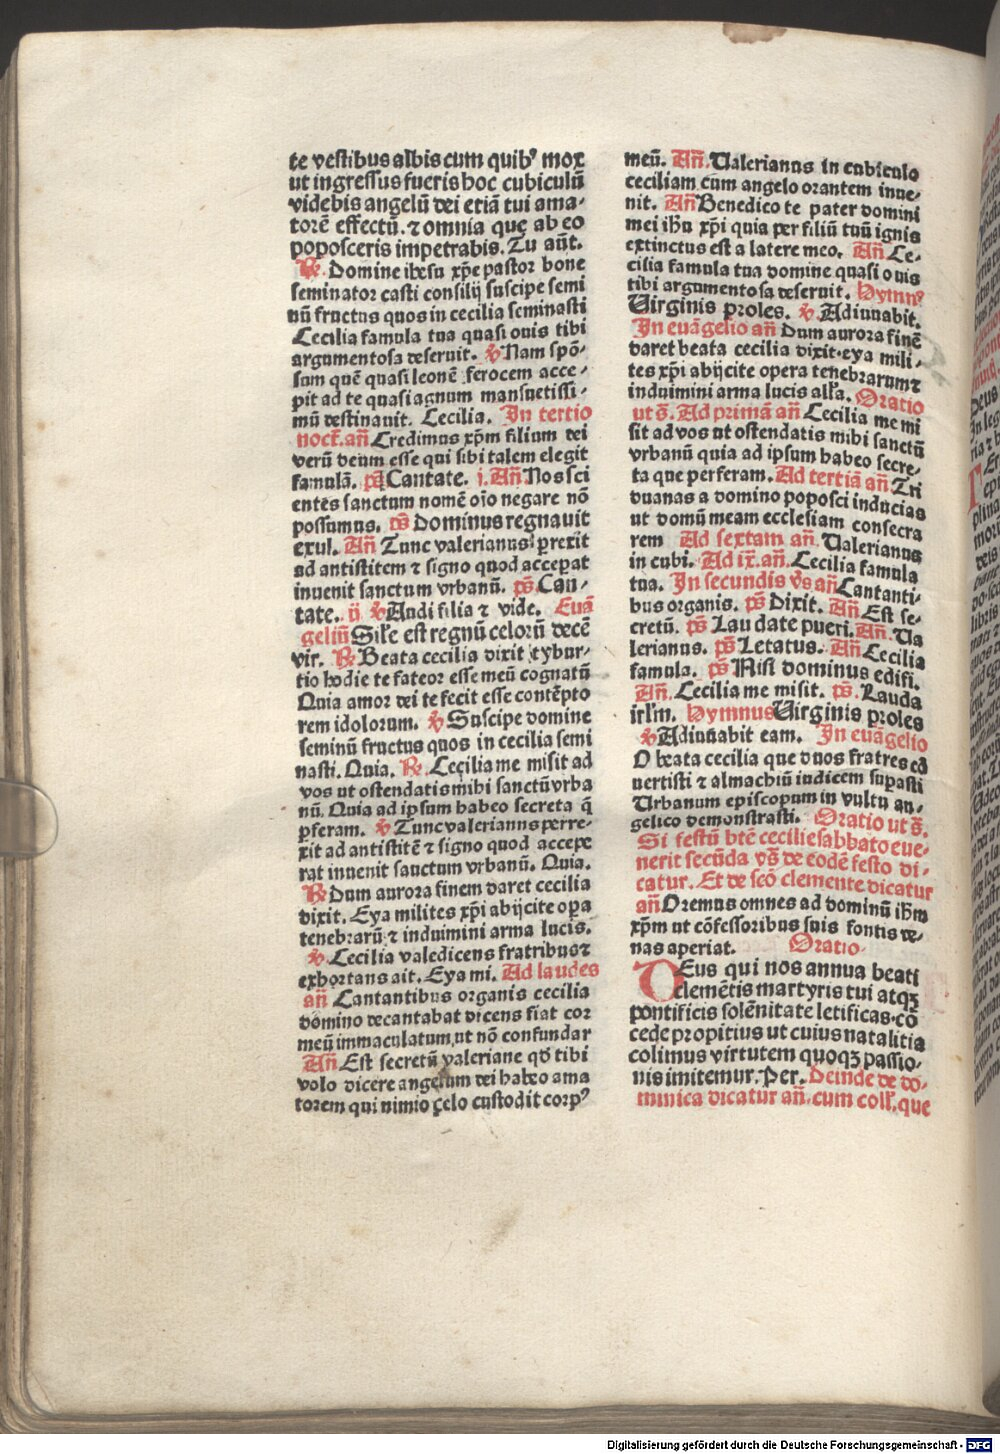 te vestibus albis cum quibꝰ mox
ut ingressus fueris hoc cubiculū
videbis angelū dei etiā tui ama-
torē effectū. ⁊ omnia que ab eo
poposceris impetrabis. Tu aūt.
℟. Domine ihesu xp̄e pastor bone
seminator casti consilij suscipe semi
nū fructus quos in cecilia seminasti
Cecilia famula tua quasi ouis tibi
argumentosa deseruit. ℣ Nam spō-
sum quē quasi leonē ferocem acce-
pit ad te quasi agnum mansuetissi-
mū destinauit. Cecilia. In tertio
noct̄. an̄ Credimus xp̄m filium dei
verū deum esse qui sibi talem elegit
famulā. ps̄ Cantate. i. An̄ Nos sci
entes sanctum nomē oīo negare nō
possumus. ps̄ Dominus regnauit
exul. An̄ Tunc valerianus perrexit
ad antistitem ⁊ signo quod acceperat
inuenit sanctum vrbanū. ps̄. Can-
tate. ij ℣ Audi filia ⁊ vide. Euā
geliū Sil̄e est regnū celorū decē
vir. ℟. Beata cecilia dixit tybur-
tio hodie te fateor esse meū cognatū
Quia amor dei te fecit esse contēpto
rem idolorum. ℣ Suscipe domine
seminū fructus quos in cecilia semi
nasti. Quia. ℟. Cecilia me misit ad
vos ut ostendatis mihi sanctū vrba
nū. Quia ad ipsum habeo secreta q̄
ꝑferam. ℣ Tunc valerianus perre-
xit ad antistitē ⁊ signo quod accepe
rat inuenit sanctum vrbanū. Quia.
℟ Dum aurora finem daret cecilia
dixit. Eya milites xp̄i abijcite oꝑa
tenebrarū ⁊ induimini arma lucis.
℣. Cecilia valedicens fratribus ⁊
exhortans ait. Eya mi. Ad laudes
an̄ Cantantibus organis cecilia
domino decantabat dicens fiat cor
meū immaculatum ut nō confundar
An̄ Est secretū valeriane qd̄ tibi
volo dicere angelum dei habeo ama
torem qui nimio çelo custodit corpꝰ
meū. An̄. Valerianus in cubiculo
ceciliam cum angelo orantem inue-
nit. An̄ Benedico te pater domini
mei ihū xp̄i quia per filiū tuū ignis
extinctus est a latere meo. An̄ Ce-
cilia famula tua domine quasi ouis
tibi argumentosa deseruit. Hymnꝰ
Virginis proles. ℣. Adiuuabit.
In euāgelio an̄ Dum aurora finē
daret beata cecilia dixit. eya mili-
tes xp̄i abijcite opera tenebrarum ⁊
induimini arma lucis all̄a. Oratio
ut s̄. Ad primā an̄ Cecilia me mi
sit ad vos ut ostendatis mihi sanctū
vrbanū quia ad ipsum habeo secre-
ta que perferam. Ad tertiā an̄. Tri
duanas a domino poposci inducias
ut domū meam ecclesiam consecra
rem Ad sextam an̄. Valerianus
in cubi. Ad ix̄. an̄. Cecilia famula
tua. In secundis v̄s an̄ Cantanti-
bus organis. ps̄ Dixit. An̄ Est se-
cretū. ps̄ Laudate pueri. An̄. Va
lerianus. ps̄ Letatus. An̄ Cecilia
famula. ps̄ Nisi dominus edifi.
An̄. Cecilia me misit. ps̄. Lauda
irl̄m. Hymnus Virginis proles
℣ Adiuuabit eam. In euāgelio
O beata cecilia que duos fratres cō
uertisti ⁊ almachiū iudicem suꝑasti
Urbanum episcopum in vultu an-
gelico demonstrasti. Oratio ut s̄.
Si festū btē cecilie sabbato eue-
nerit secūda vs̄ de eodē festo di-
catur. Et de scō clemente dicatur
an̄ Oremus omnes ad dominū ihm̄
xp̄m ut cōfessoribus suis fontis ve-
nas aperiat. Oratio
DEus qui nos annua beati
clemētis martyris tui atqꝫ
pontificis solēnitate letificas. cō
cede propitius ut cuius natalitia
colimus virtutem quoqꝫ passio-
nis imitemur. Per. Deinde de do-
minica dicatur an̄. cum coll̄. que
Digitalisierung gefördert durch die Deutsche Forschungsgemeinschaft - DFG